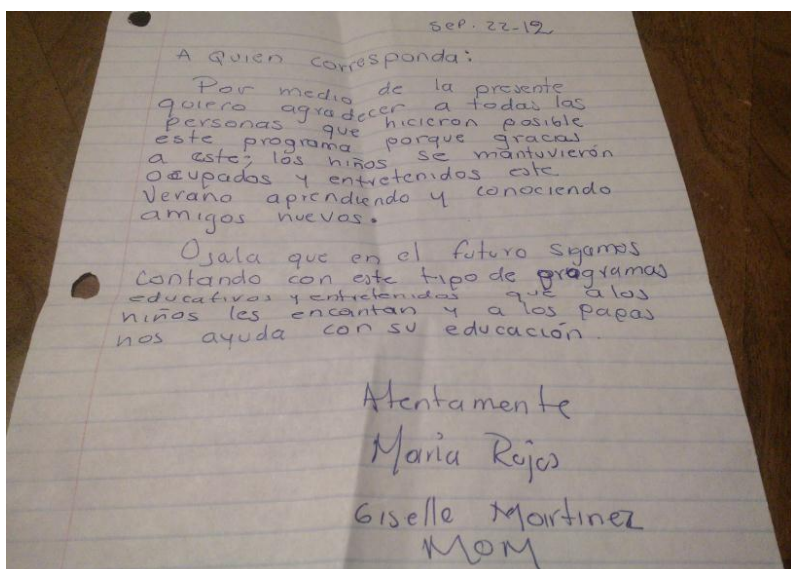 sep. 22-12
A Quien corresponda:
Por medio de la presente
quiero agradecer a todas las
personas que hicieron posible
este programa porque gracias
a este; los niños se mantuvierón
ocupados y entretenidos este
Verano aprendiendo y conociendo
amigos nuevos.
Ojala que en el futuro sigamos
contando con este tipo de programas
educativos y entretenidos que a los
niños les encantan y a los papas
nos ayuda con su educación.
Atentamente
Maria Rojas
Giselle Martinez
MOM